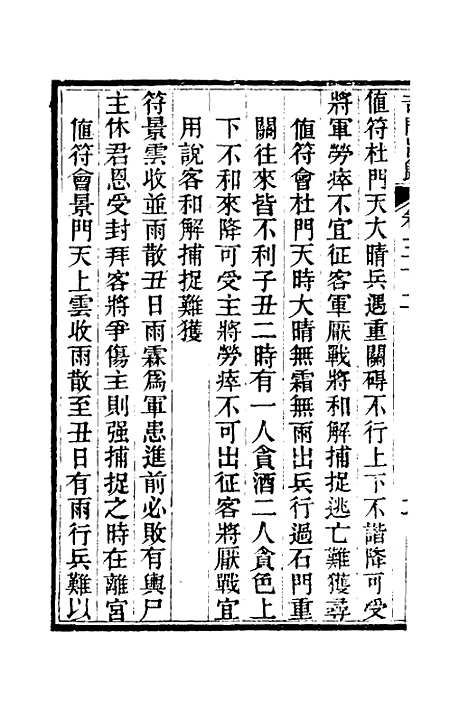 值符杜門天大晴兵遇重關碍不行上下不諧降可受
將軍勞瘁不宜征客軍厭戰將和解捕捉逃亡難獲尋
值符會杜門天時大晴無霜無雨出兵行過石門重
關往來皆不利子丑二時有一人貪酒二人貪色上
下不和來降可受主將勞瘁不可出征客將厭戰宜
用說客和解捕捉難獲
符景雲收並雨散丑日雨霖爲軍患進前必敗有輿尸
主休君恩受封拜客將爭傷主則强捕捉之時在離宮
值符會景門天上雲收雨散至丑日有雨行兵難以